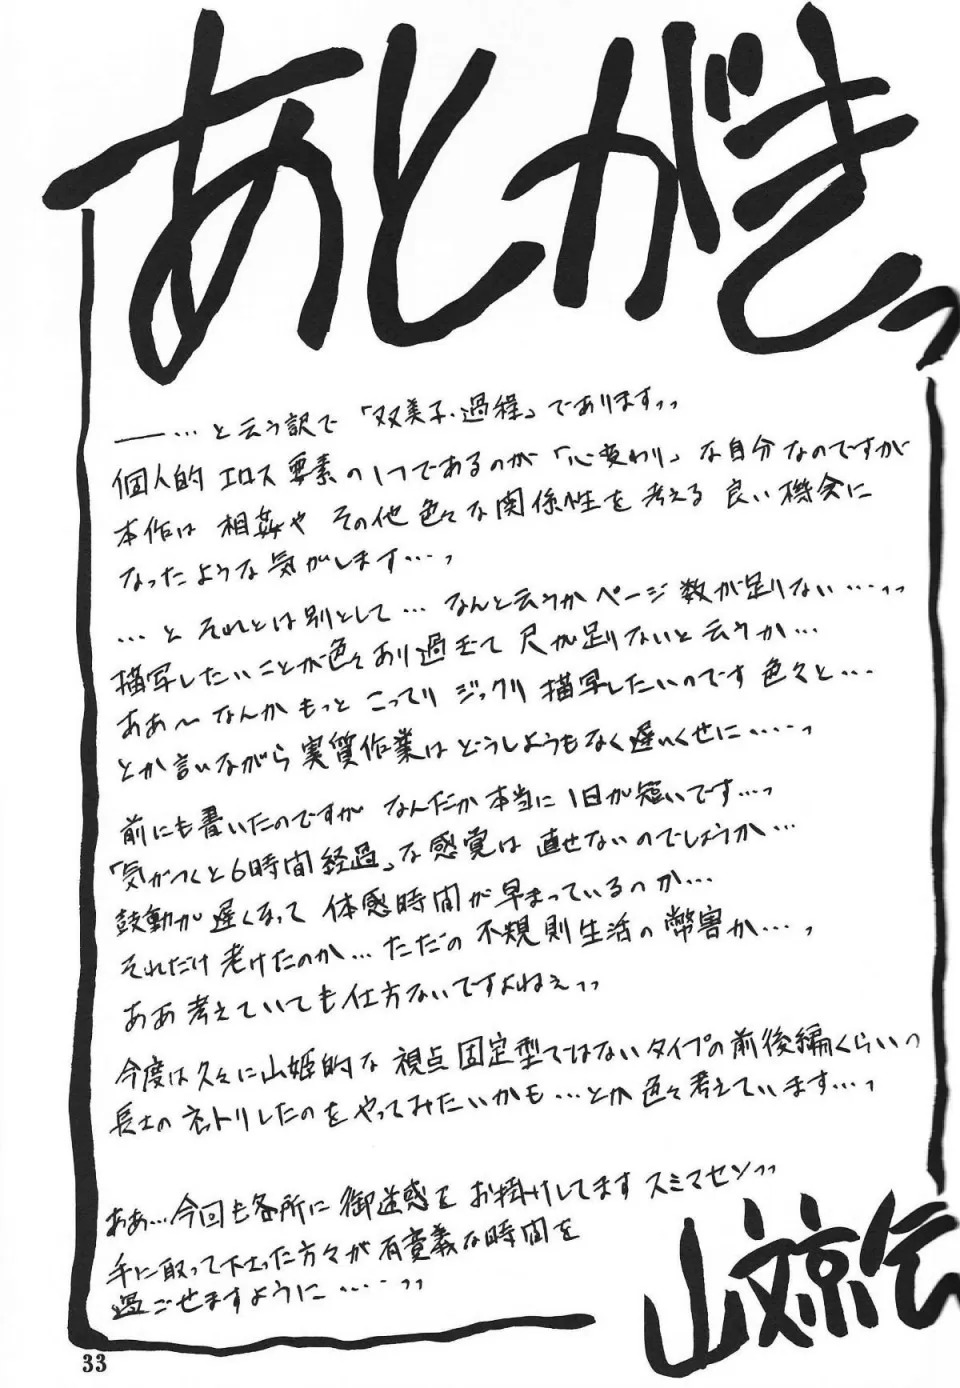 あとがきっ
――…と云う訳で「双美子・過程」であります,,
個人的エロス要素の1つであるのが「心変わり」な自分なのですが
本作は相姦やその他色々な関係性を考える良い機会に
なったような気がします…っ
…とそれとは別として…なんと云うかページ数が足りない…,,
描写したいことが色々あり過ぎて尺が足りないと云うか…
ああ〜なんかもっとこってりジックリ描写したいのです色々と…
とか言いながら実質作業はどうしようもなく遅いくせに……っ
前にも書いたのですがなんだか本当に1日が短いです…っ
「気がつくと6時間経過」な感覚は直せないのでしょうか…
鼓動が遅くなって体感時間が早まっているのか…
それだけ老けたのか…ただの不規則生活の弊害か…っ
ああ考えていても仕方ないですよねぇ,,
今度は久々に山姫的な視点固定型ではないタイプの前後編くらいっ
長さのネットリしたのをやってみたいかも…とか色々考えています…っ
ああ…今回も各所に御迷惑をお掛けしてますスミマセン,,
手に取って下さった方々が有意義な時間を
過ごせますように……,,
山文京伝
33